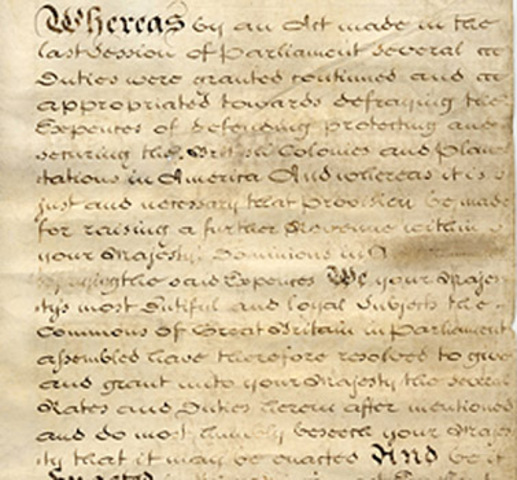 Whereas by an Act made in the
last Session of Parliament several
Duties were granted continued and
appropriated towards defraying the
Expences of defending protecting and
securing the British Colonies and Plan
tations in America And whereas it is
just and necessary that provision be made
for raising a further Revenue within
your Majestys Dominions in A
the said Expences We your Majes
tys most Dutiful and loyal Subjects the
Commons of Great Britain in Parliament
assembled have therefore resolved to give
and grant unto your Majesty the several
Rates and Duties herein after mentioned
and do most humbly beseech your Majes
ty that it may be enacted And be it